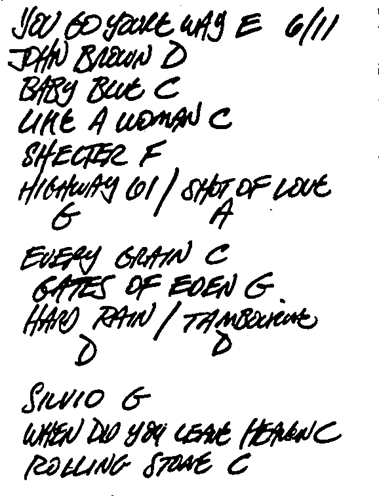 YOU GO YOURE WAY E 6/11
JOHN BROWN D
BABY BLUE C
LIKE A WOMAN C
SHELTER F
HIGHWAY 61 / SHOT OF LOVE
G A
EVERY GRAIN C
GATES OF EDEN G
HARD RAIN / TAMBOURINE
D D
SILVIO G
WHEN DID YOU LEAVE HEAVEN C
ROLLING STONE C